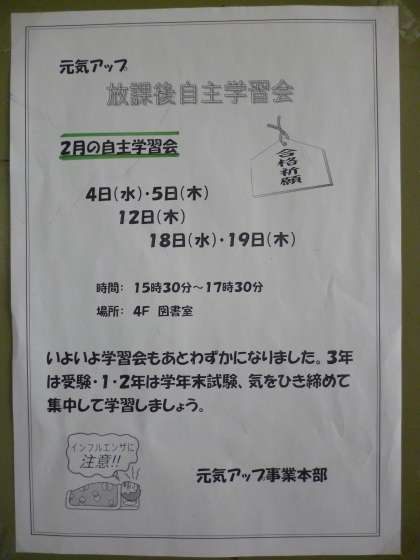 元気アップ
放課後自主学習会
2月の自主学習会
合格祈願
4日(水)・5日(木)
12日(木)
18日(水)・19日(木)
時間: 15時30分～17時30分
場所: 4F 図書室
いよいよ学習会もあとわずかになりました。3年
は受験・1・2年は学年末試験、気をひき締めて
集中して学習しましょう。
インフルエンザに
注意!!
元気アップ事業本部